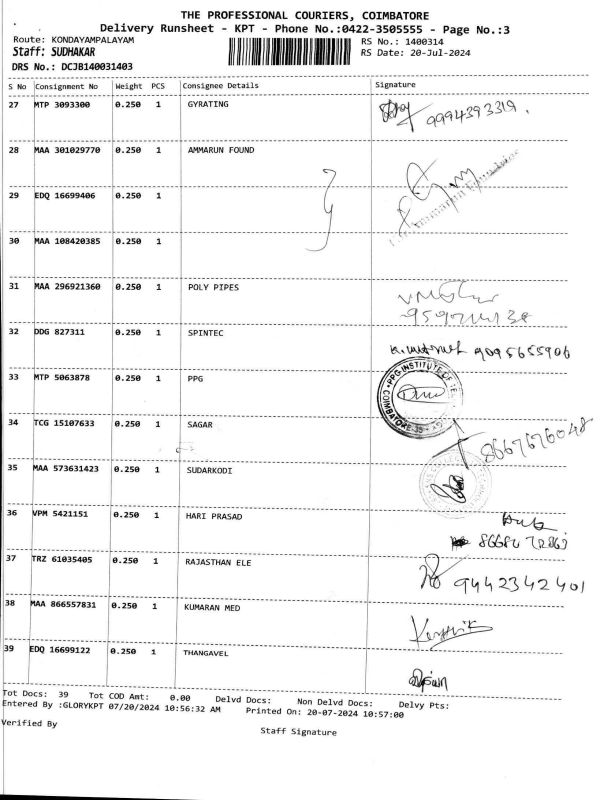 THE PROFESSIONAL COURIERS, COIMBATORE
Delivery Runsheet - KPT - Phone No.:0422-3505555 - Page No.:3
Route: KONDAYAMPALAYAM RS No.: 1400314
Staff: SUDHAKAR RS Date: 20-Jul-2024
DRS No.: DCJB140031403
S No Consignment No Weight PCS Consignee Details Signature
27 MTP 3093300 0.250 1 GYRATING 9994393319.
28 MAA 301029770 0.250 1 AMMARUN FOUND
29 EDQ 16699406 0.250 1
30 MAA 108420385 0.250 1
31 MAA 296921360 0.250 1 POLY PIPES
32 DDG 827311 0.250 1 SPINTEC 9095655906
33 MTP 5063878 0.250 1 PPG PPG INSTITUTE OF COIMBATORE-35
34 TCG 15107633 0.250 1 SAGAR 8667676048
35 MAA 573631423 0.250 1 SUDARKODI
36 VPM 5421151 0.250 1 HARI PRASAD
37 TRZ 61035405 0.250 1 RAJASTHAN ELE 9442342401
38 MAA 866557831 0.250 1 KUMARAN MED
39 EDQ 16699122 0.250 1 THANGAVEL
Tot Docs: 39 Tot COD Amt: 0.00 Delvd Docs: Non Delvd Docs: Delvy Pts:
Entered By :GLORYKPT 07/20/2024 10:56:32 AM Printed On: 20-07-2024 10:57:00
Verified By Staff Signature